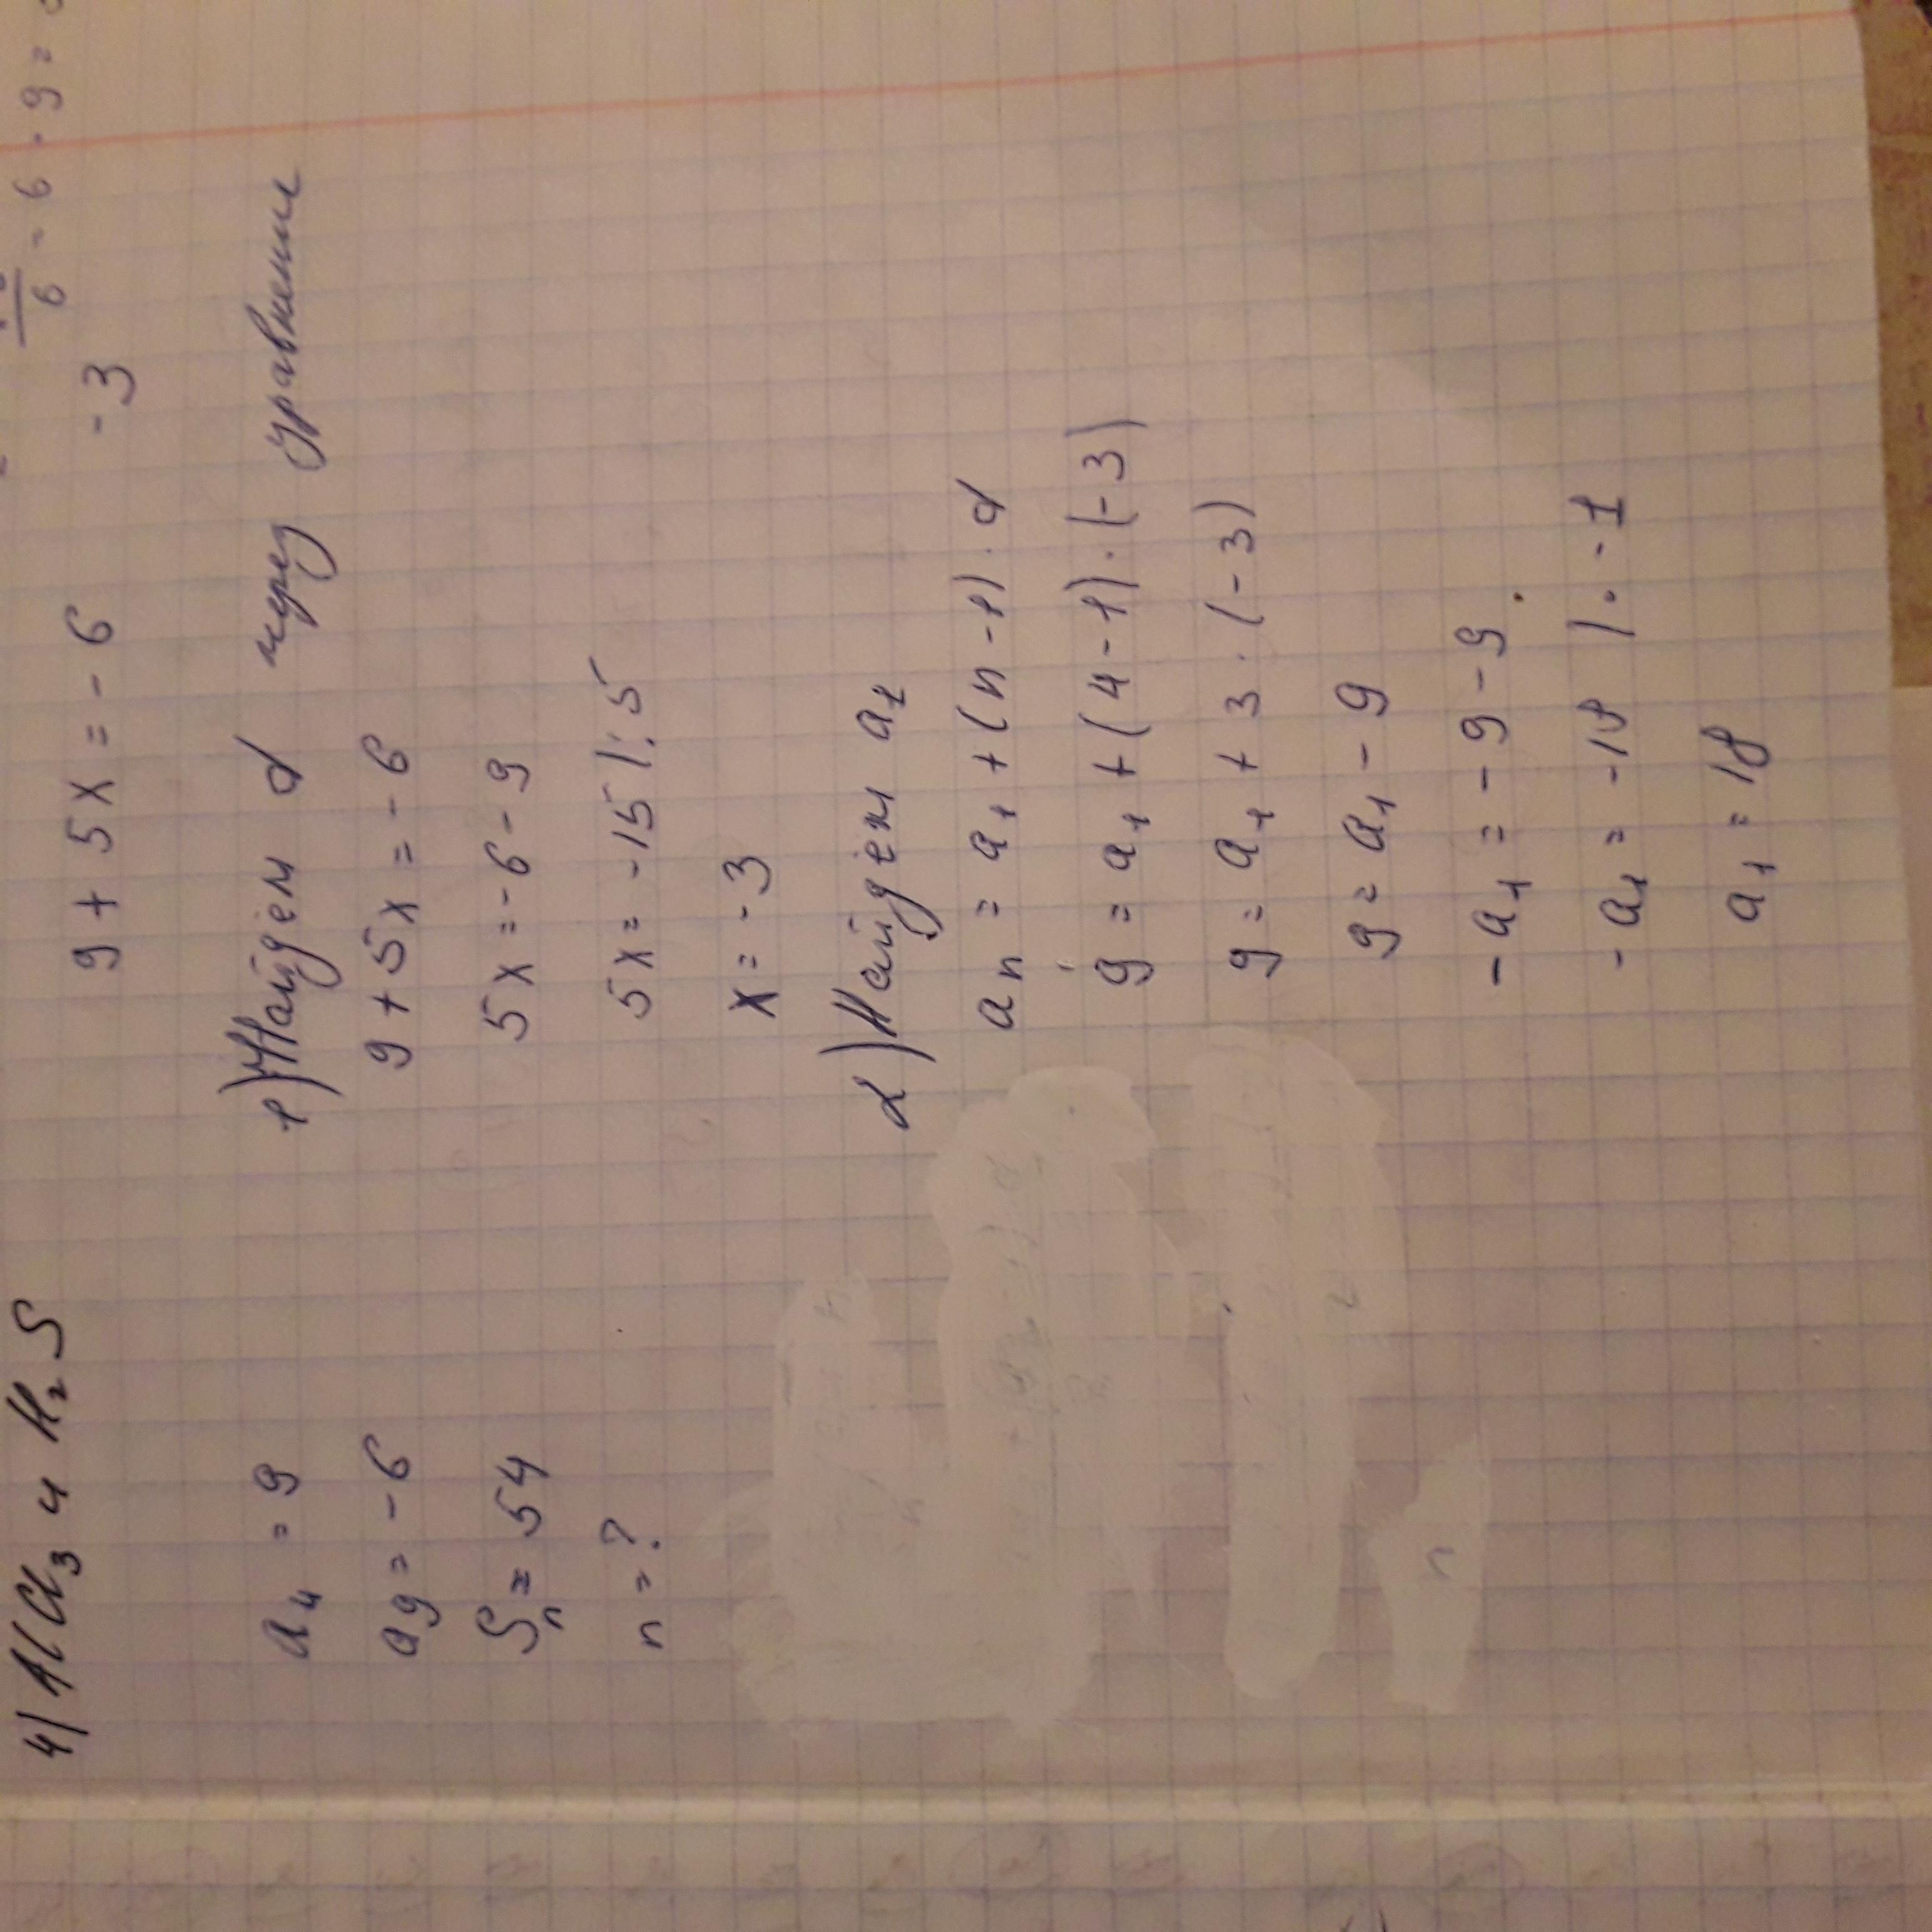 6 - 6 · 9 =
9 + 5x = - 6
- 3
4) AlCl₃ и H₂S
a₄ = 9
a₉ = - 6
Sₙ = 54
n = ?
1) Найдем d через уравнение
9 + 5x = - 6
5x = - 6 - 9
5x = - 15 | : 5
x = - 3
2) Найдем a₁
aₙ = a₁ + (n - 1) · d
9 = a₁ + (4 - 1) · (- 3)
9 = a₁ + 3 · (- 3)
9 = a₁ - 9
- a₁ = - 9 - 9
- a₁ = - 18 | · - 1
a₁ = 18